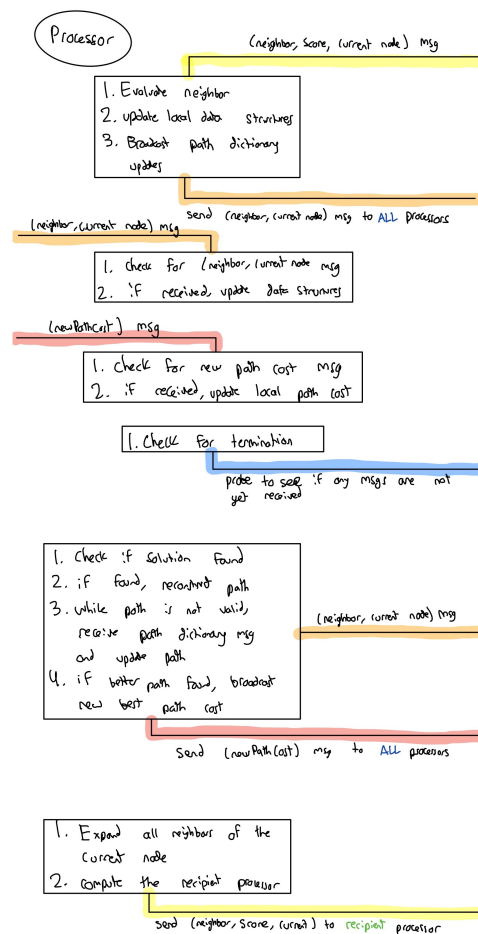 Processor
(neighbor, score, current node) msg
1. Evaluate neighbor
2. update local data structures
3. Broadcast path dictionary
updates
send (neighbor, current node) msg to ALL processors
(neighbor, current node) msg
1. check for (neighbor, current node msg
2. if received, update data structures
(newPathCost) msg
1. Check for new path cost msg
2. if received, update local path cost
1. Check for termination
probe to see if any msgs are not
yet received
1. Check if solution found
2. if found, reconstruct path
3. while path is not valid,
receive path dictionary msg
and update path
4. if better path found, broadcast
new best path cost
(neighbor, current node) msg
Send (newPathCost) msg to ALL processors
1. Expand all neighbors of the
current node
2. compute the recipient processor
send (neighbor, score, current) to recipient processor